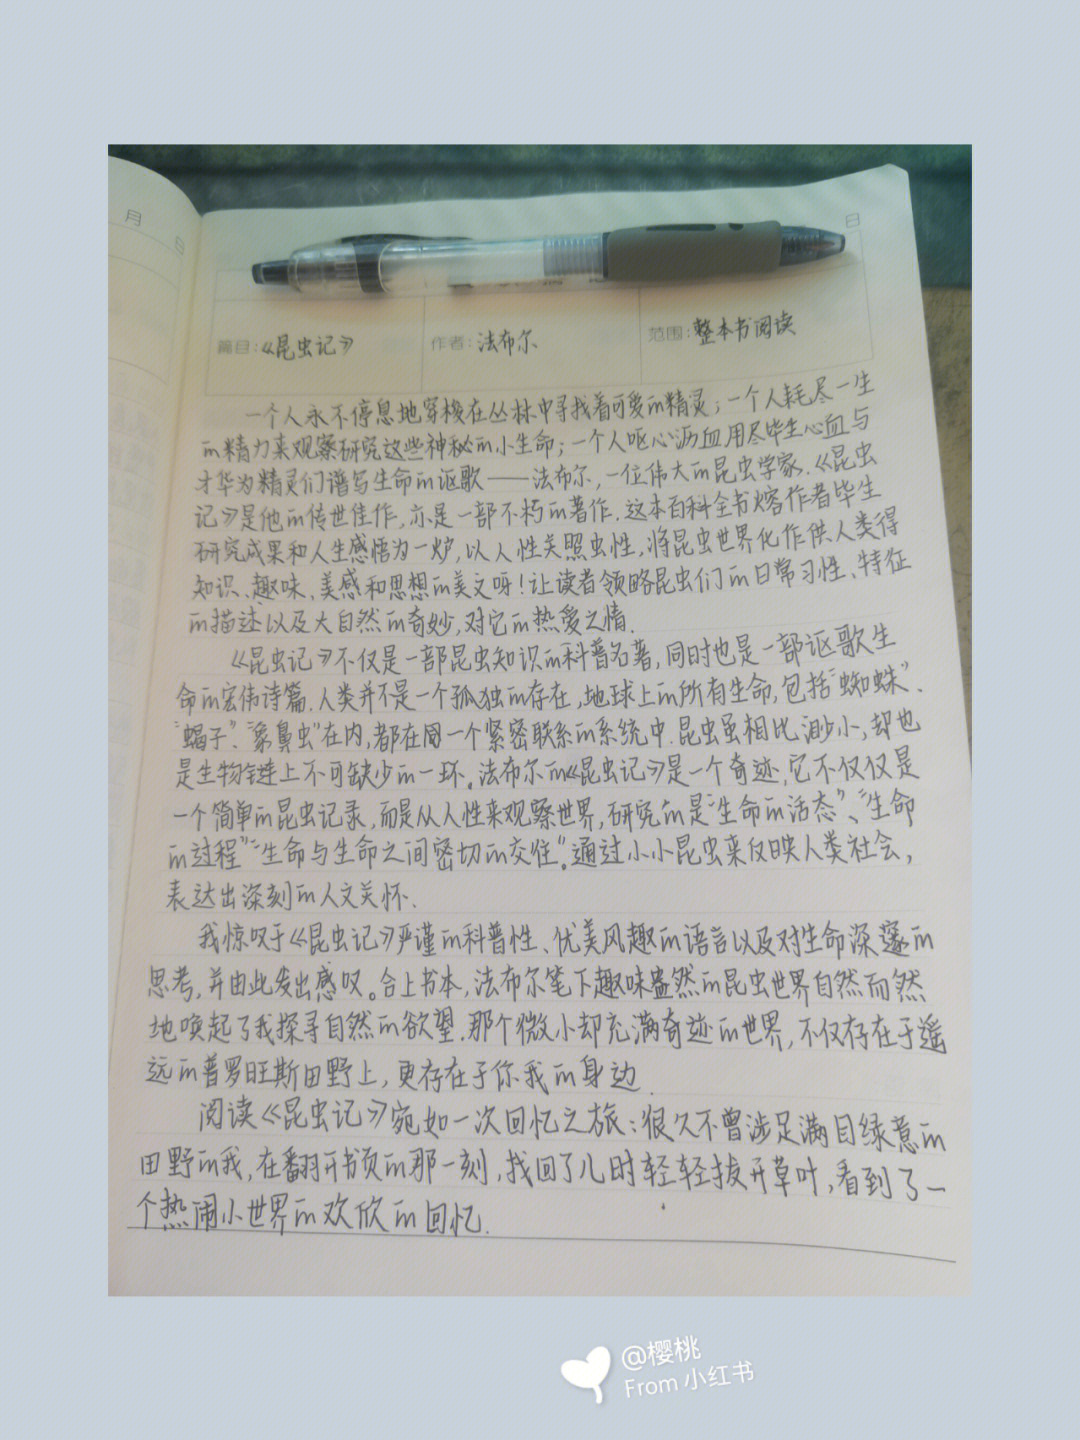 月 日
日
篇目:《昆虫记》 作者:法布尔 范围:整本书阅读
一个人永不停息地穿梭在丛林中寻找着可爱的精灵;一个人耗尽一生
的精力来观察研究这些神秘的小生命;一个人呕心沥血用尽毕生心血与
才华为精灵们谱写生命的讴歌——法布尔,一位伟大的昆虫学家.《昆虫
记》是他的传世佳作,亦是一部不朽的著作.这本百科全书熔作者毕生
研究成果和人生感悟为一炉,以人性关照虫性,将昆虫世界化作供人类得
知识、趣味、美感和思想的美文呀!让读者领略昆虫们的日常习性、特征
的描述以及大自然的奇妙,对它的热爱之情.
《昆虫记》不仅是一部昆虫知识的科普名著,同时也是一部讴歌生
命的宏伟诗篇.人类并不是一个孤独的存在,地球上的所有生命,包括"蜘蛛"、
"蝎子"、"象鼻虫"在内,都在同一个紧密联系的系统中.昆虫虽相比渺小,却也
是生物链上不可缺少的一环。法布尔的《昆虫记》是一个奇迹,它不仅仅是
一个简单的昆虫记录,而是从人性来观察世界,研究的是"生命的活态"、"生命
的过程""生命与生命之间密切的交往"。通过小小昆虫来反映人类社会,
表达出深刻的人文关怀.
我惊叹于《昆虫记》严谨的科普性、优美风趣的语言以及对生命深邃的
思考,并由此发出感叹。合上书本,法布尔笔下趣味盎然的昆虫世界自然而然
地唤起了我探寻自然的欲望.那个微小却充满奇迹的世界,不仅存在于遥
远的普罗旺斯田野上,更存在于你我的身边.
阅读《昆虫记》宛如一次回忆之旅:很久不曾涉足满目绿意的
田野的我,在翻开书页的那一刻,找回了儿时轻轻拨开草叶,看到了一
个热闹小世界的欢欣的回忆.
@樱桃
From 小红书